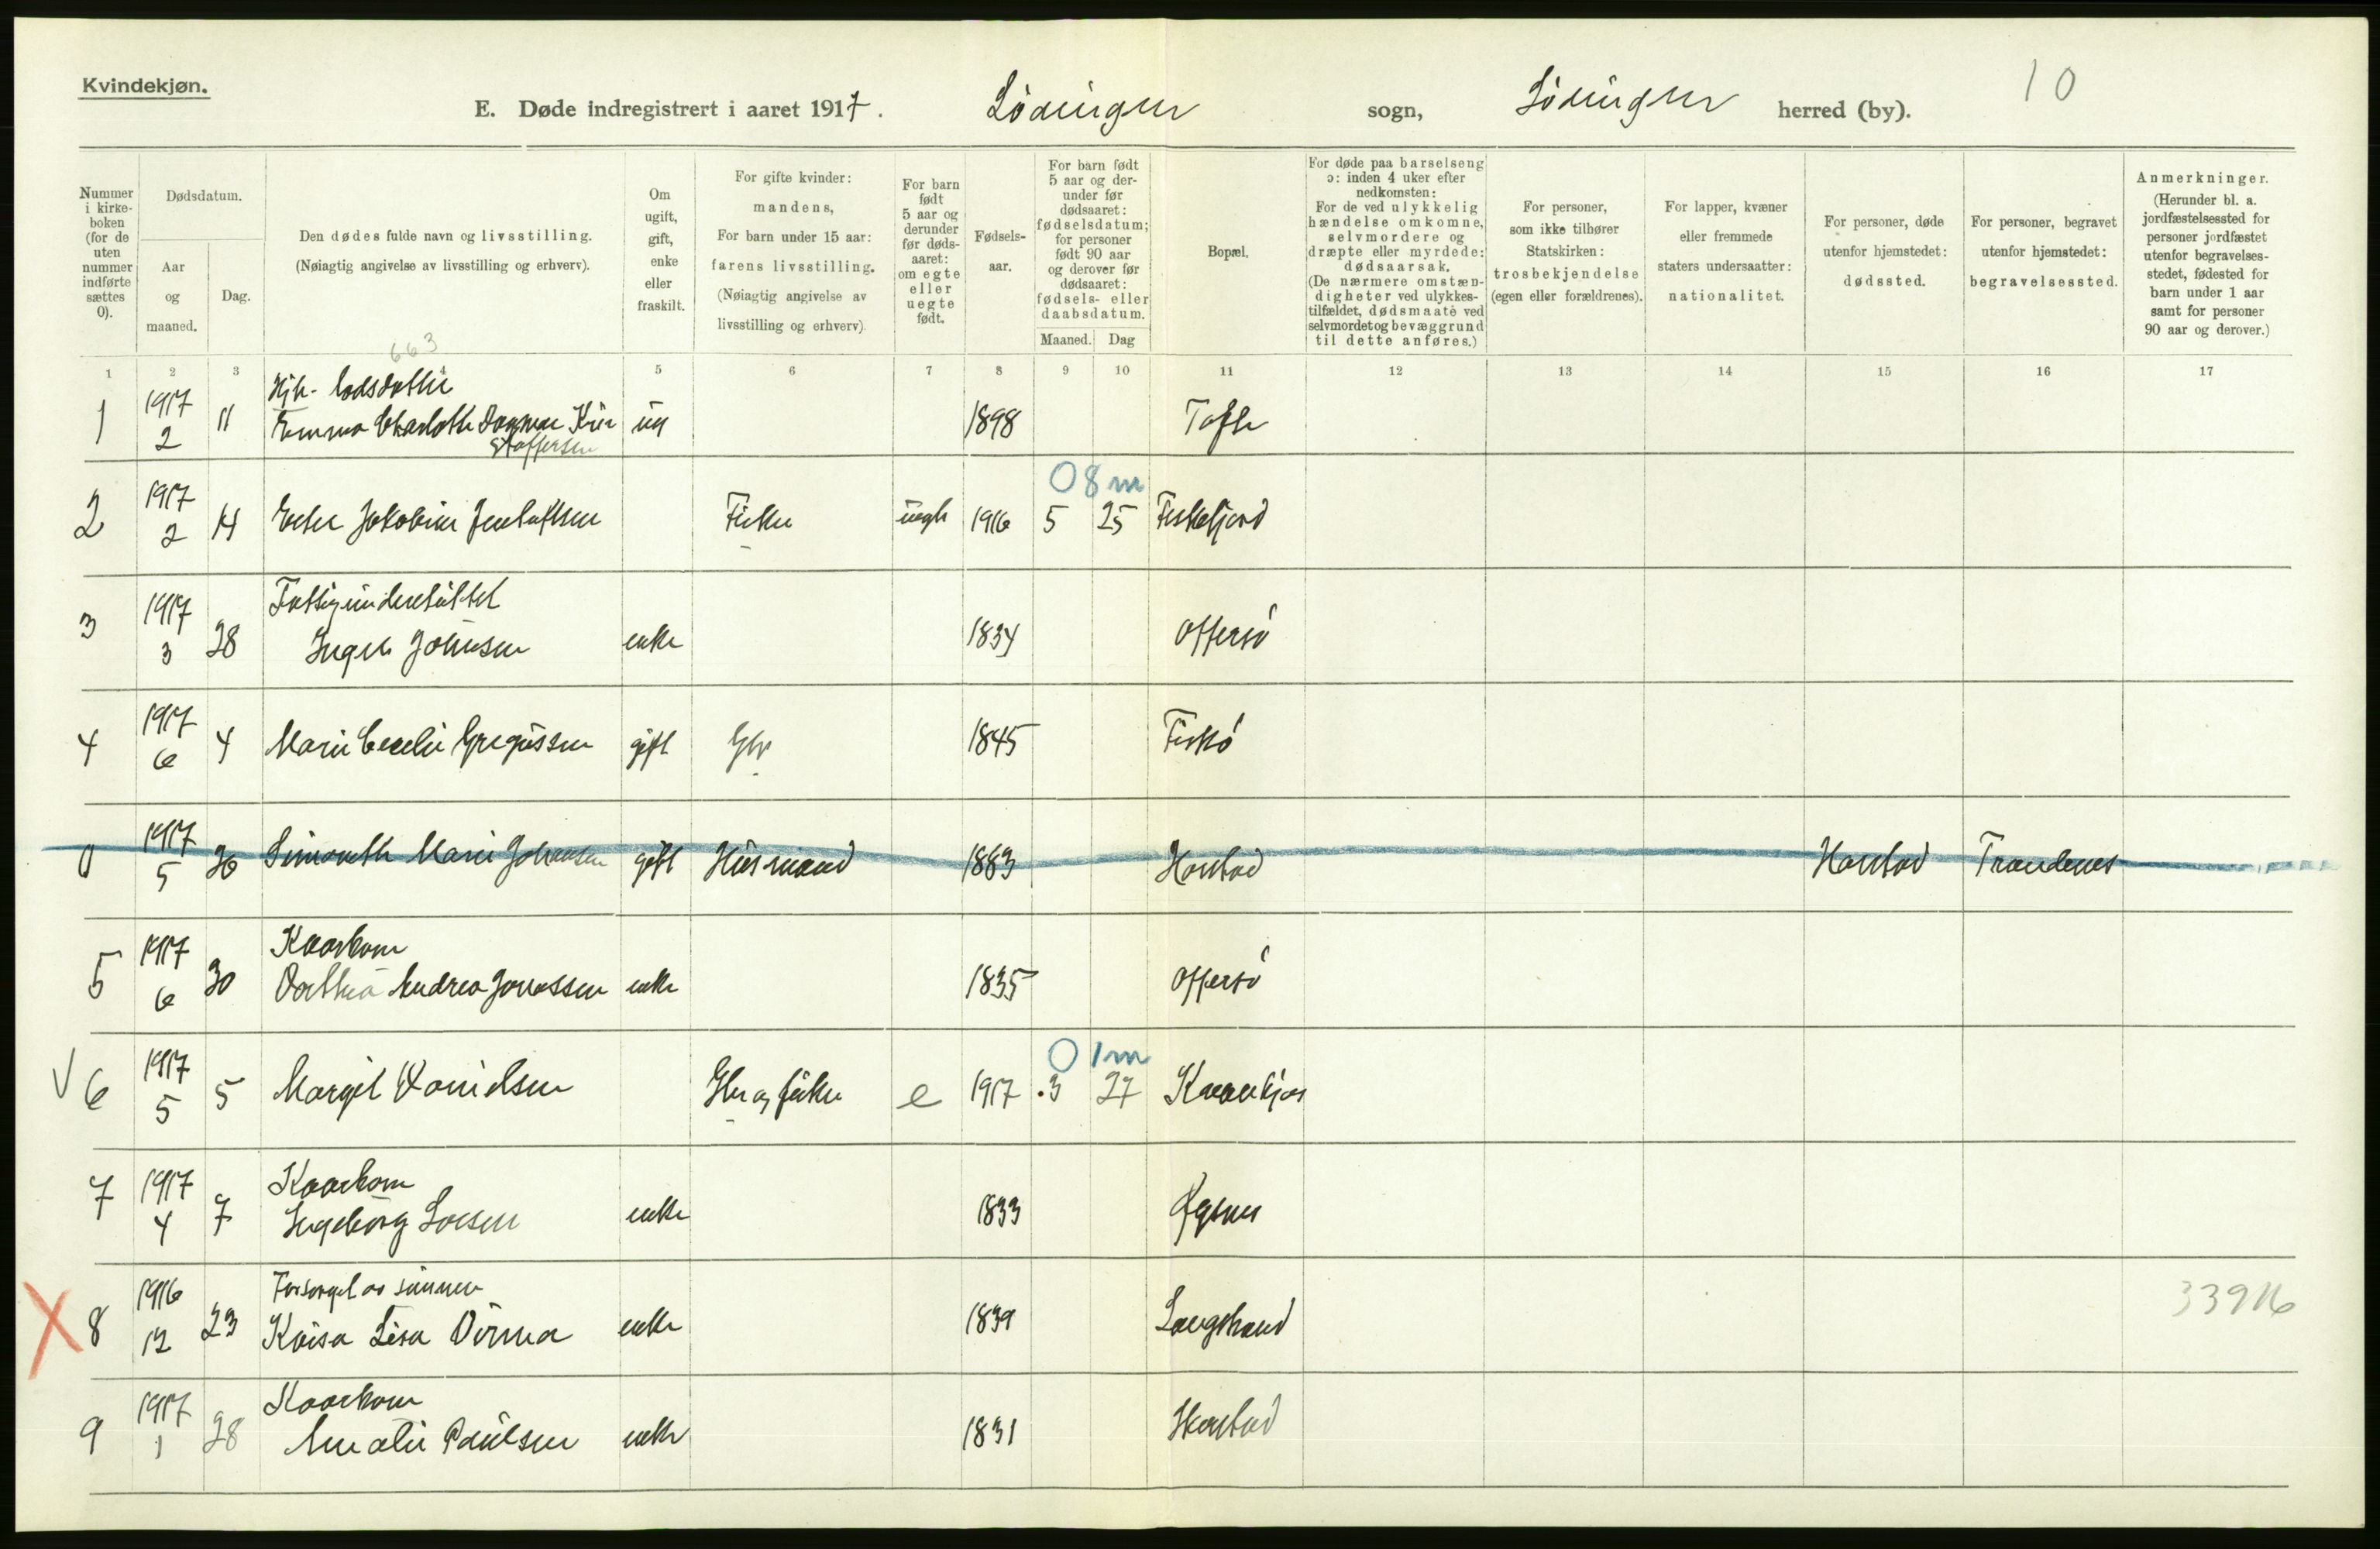 Kvindekjøn.
E. Døde indregistrert i aaret 1917. Lødingen sogn, Lødingen herred (by). 10
Nummer i kirkeboken (for de uten nummer indførte sættes 0).
Dødsdatum.
Aar og maaned.
Dag.
Den dødes fulde navn og livsstilling.
(Nøiagtig angivelse av livsstilling og erhverv).
Om ugift, gift, enke eller fraskilt.
For gifte kvinder: mandens,
For barn under 15 aar: farens livsstilling.
(Nøiagtig angivelse av livsstilling og erhverv)
For barn født 5 aar og derunder før dødsaaret: om egte eller uegte født.
Fødselsaar.
For barn født 5 aar og derunder før dødsaaret: fødselsdatum; for personer født 90 aar og derover før dødsaaret: fødsels- eller daabsdatum.
Maaned. Dag
Bopæl.
For døde paa barselseng ɔ: inden 4 uker efter nedkomsten:
For de ved ulykkelig hændelse omkomne, selvmordere og dræpte eller myrdede: dødsaarsak.
(De nærmere omstændigheter ved ulykkestilfældet, dødsmaate ved selvmordet og bevæggrund til dette anføres.)
For personer, som ikke tilhører Statskirken: trosbekjendelse (egen eller forældrenes).
For lapper, kvæner eller fremmede staters undersaatter: nationalitet.
For personer, døde utenfor hjemstedet: dødssted.
For personer, begravet utenfor hjemstedet: begravelsessted.
Anmerkninger.
(Herunder bl. a. jordfæstelsessted for personer jordfæstet utenfor begravelsesstedet, fødested for barn under 1 aar samt for personer 90 aar og derover.)
663
1 2 3 4 5 6 7 8 9 10 11 12 13 14 15 16 17
1 1917 2 11 Emma Charlotte Dagmar Kristoffersen ug 1898
08m
2 1917 2 14 Jakobine Fisker uegte 1916 5 25 Fiskefjord
3 1917 3 28 Fattigunderstøttet
Johnsen enke 1834 Offersø
4 1917 6 4 Marie Cecelie Gregussen gift Gbr 1845 Fiskø
0 1917 5 26 Simonette Marie Johansen gift Husmand 1883 Harstad Harstad Trondenes
5 1917 6 30 Kaarkone
Dorthea Andrea Jonassen enke 1835 Offersø
01m
V 6 1917 5 5 Margit Danielsen Gbr og fisker e 1917 3 27
7 1917 4 7 Kaarkone
Ingeborg enke 1833
X 8 1916 12 23 Forsørget av sønnen
Kaisa Lisa enke 1839 Langstrand 33916
9 1917 1 28 Kaarkone
Amalie Paulsen enke 1831